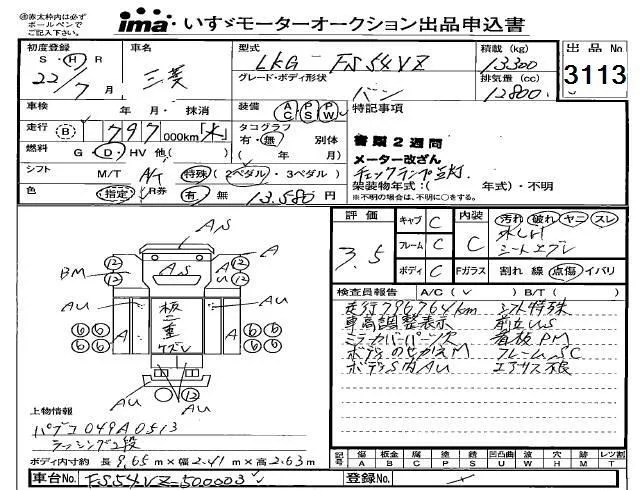 ㊟赤太枠内は必ず
ボールペンで
ご記入下さい。
ima いすゞモーターオークション出品申込書
初度登録 S・H・R 22/7月
車名 三菱
型式 LKG - FS54VZ
積載 (kg) 13300
出品No 3113
グレード・ボディ形状 バン
排気量 (cc) 12800
車検 年・月・抹消
装備 AC PS PW
特記事項
走行 (B) 797,000km「水」
タコグラフ 有・無 別体
( 年 / 月)
書類2週間
メーター改ざん
チェックランプ点灯.
燃料 G・D・HV 他( )
シフト M/T A/T 特殊 (2ペダル・3ペダル)
架装物年式:( 年式)・不明
※不明の場合は、不明に○をする。
色 (指定) R券 有 無 13,580円
評価 3.5
キャブ C
フレーム C
ボディ C
内装 C
汚れ 破れ ヤニ スレ
シートエブレ
Fガラス 割れ 線 点傷 イバリ
検査員報告 A/C ( ✓ ) B/T ( )
走行796764km シフト特殊
車高調整表示 前立US
ミラーカバーパーツ欠 看板PM
ボディのせかえM フレームSC
ボディS内AU エアサス根
AS
A
AS
BM
AU
AU
AU
A
A
板二重ケズレ
AU
AU
12 12 12
6 6 6 6
6 6 6 6
上物情報
パブコ 049A0513
ラッシング2段
ボディ内寸約 長 9.65 m×幅 2.41 m×高 2.63 m
記号 傷 A 板金 B 腐 C 塗 P 錆 S 凹凸曲 U 波 W 穴 H 跡 M レツ割 T
車台No. FS54VZ-500003
登録No.